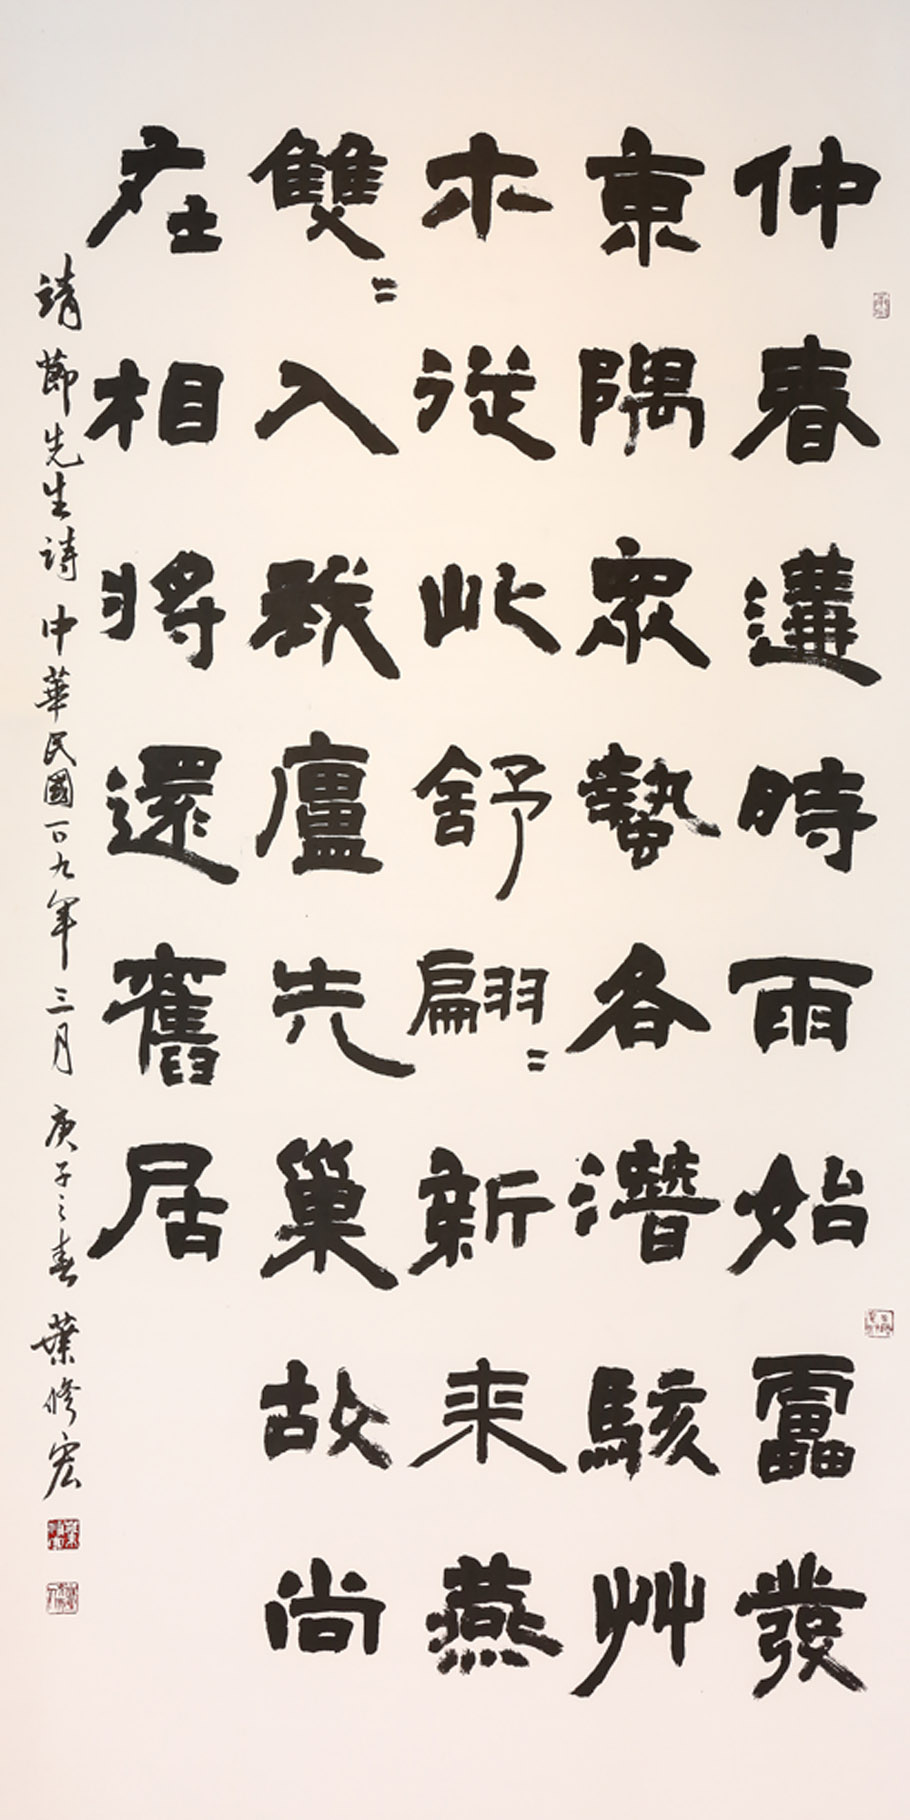 仲春遘時雨始靁發
東隅眾蟄各潛駭艸
木從此舒翩〻新來燕
雙〻入我廬先巢故尚
在相將還舊居
靖節先生詩 中華民國一百九年三月 庚子之春 葉修宏